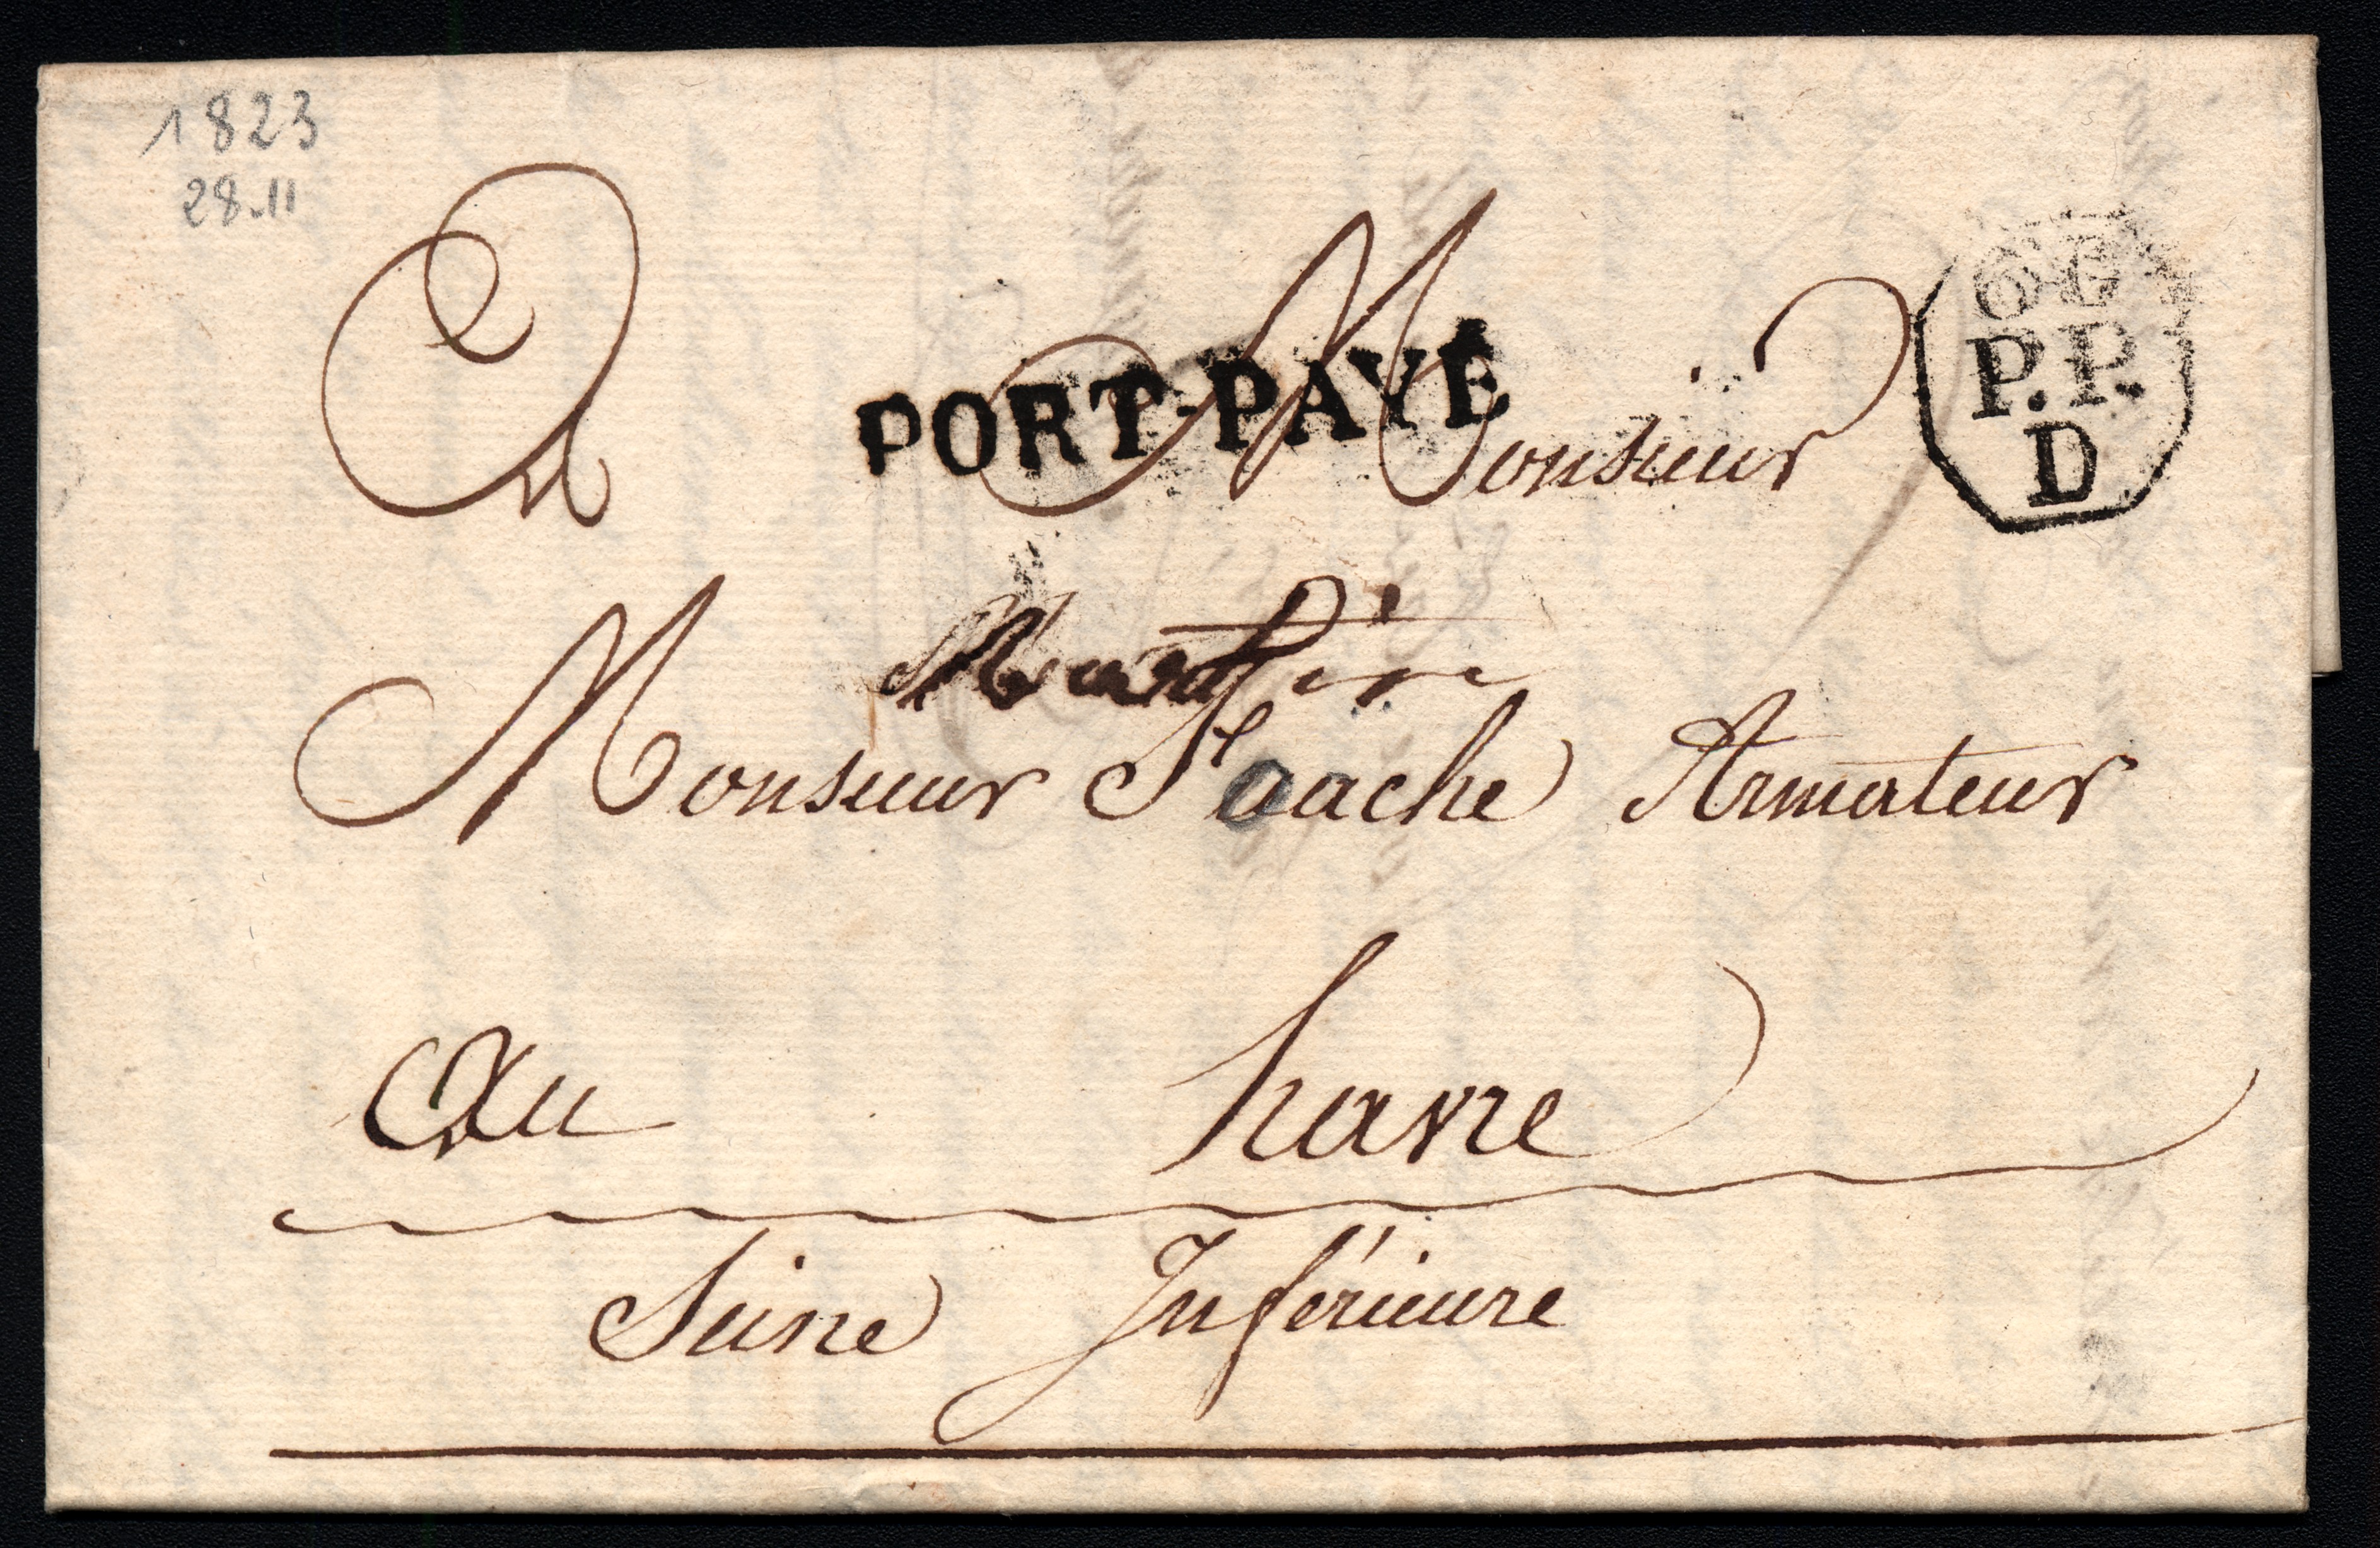 1823
28.11
A Monsieur
PORT-PAYÉ
P.P.
D
Monsieur Armateur
Au havre
Seine Inférieure